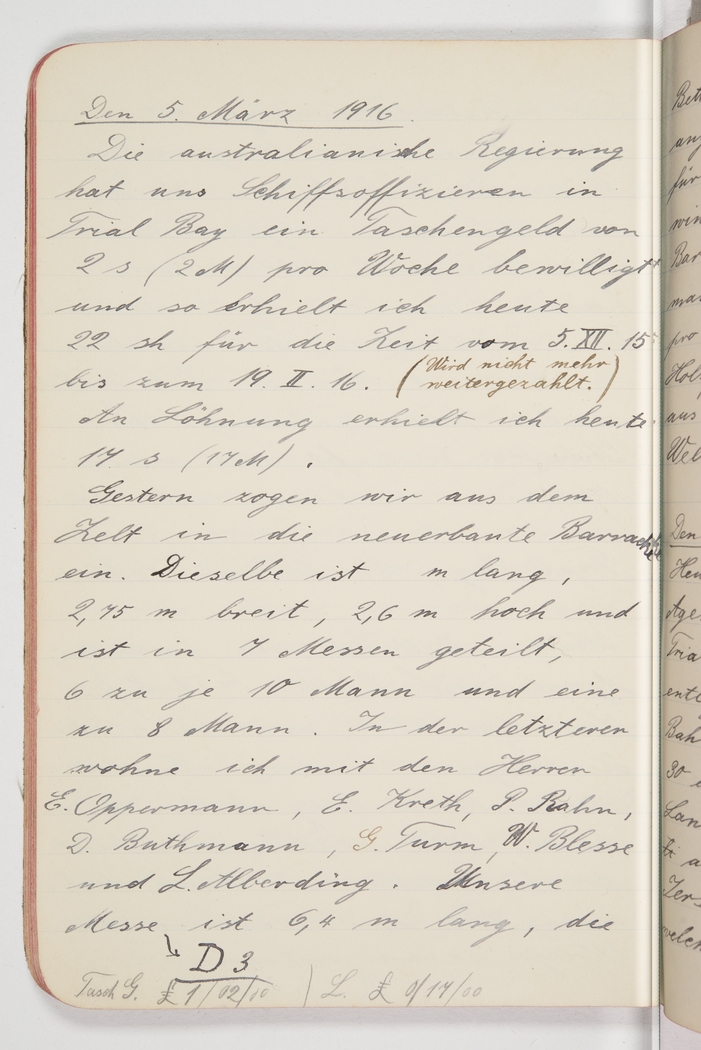 Den 5. März 1916.
Die australianische Regierung
hat uns Schiffsoffizieren in
Trial Bay ein Taschengeld von
2 s (2M) pro Woche bewilligt
und so erhielt ich heute
22 sh für die Zeit vom 5. XII. 15
bis zum 19. II. 16. (Wird nicht mehr
weitergezahlt.)
An Löhnung erhielt ich heute
17 s (17M).
Gestern zogen wir aus dem
Zelt in die neuerbaute Barracke
ein. Dieselbe ist m lang,
2,75 m breit, 2,6 m hoch und
ist in 7 Messen geteilt,
6 zu je 10 Mann und eine
zu 8 Mann. In der letzteren
wohne ich mit den Herren
E. Oppermann, E. Kreth, P. Rahn,
D. Buthmann, G. Turm, W. Blesse
und L. Alberding. Unsere
Messe ist 6,4 m lang, die
D 3
Tasch G. £ 1/02/00 | L. £ 0/17/00
Bet
für
Bar
pro
Hol
aus
Wel
Den
Heu
Age
Tria
Bah
30
Lan